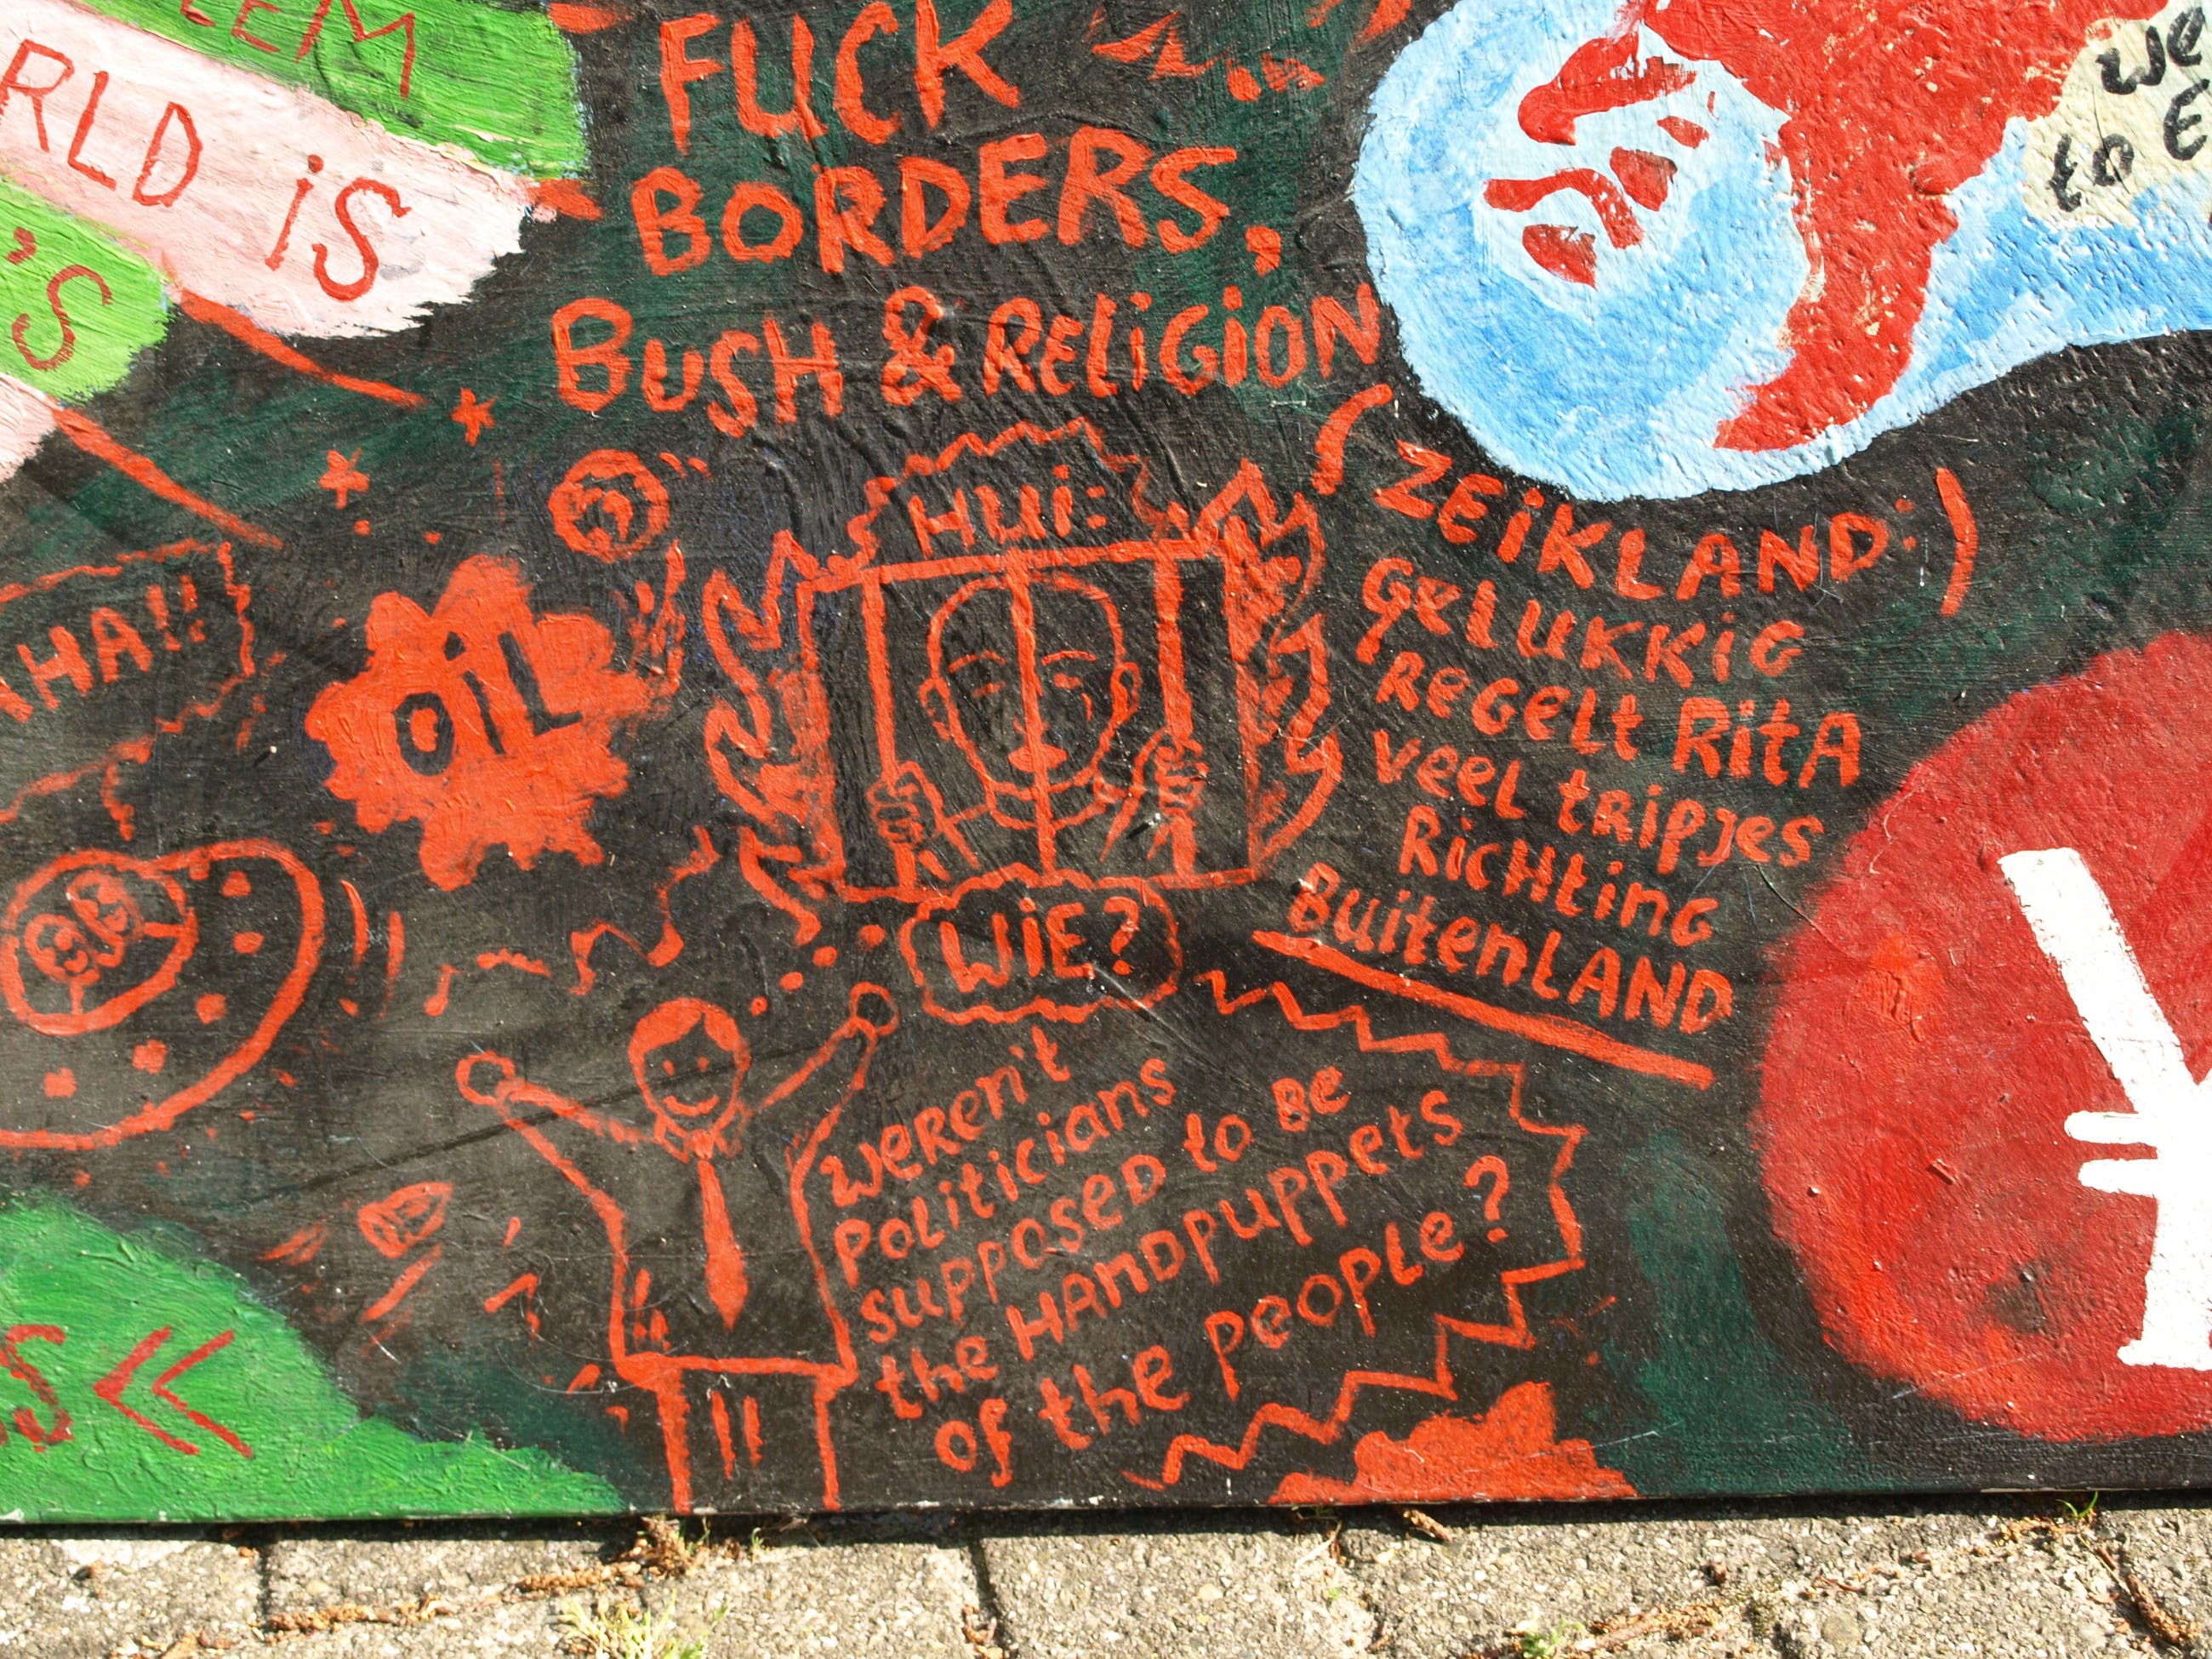 LEM
RLD iS
'S
FUCK
BORDERS,
BUSH & RELiGiON
we
to E
HUi:
(ZEiKLAND:)
GELUKKiG
REGELT RitA
VEEL tRiPJES
RiCHtinG
BuitenLAND
HA!!
OiL
WiE?
weren't
Politicians
supposed to Be
the HANDpuppets
of the people?
S <<
¥